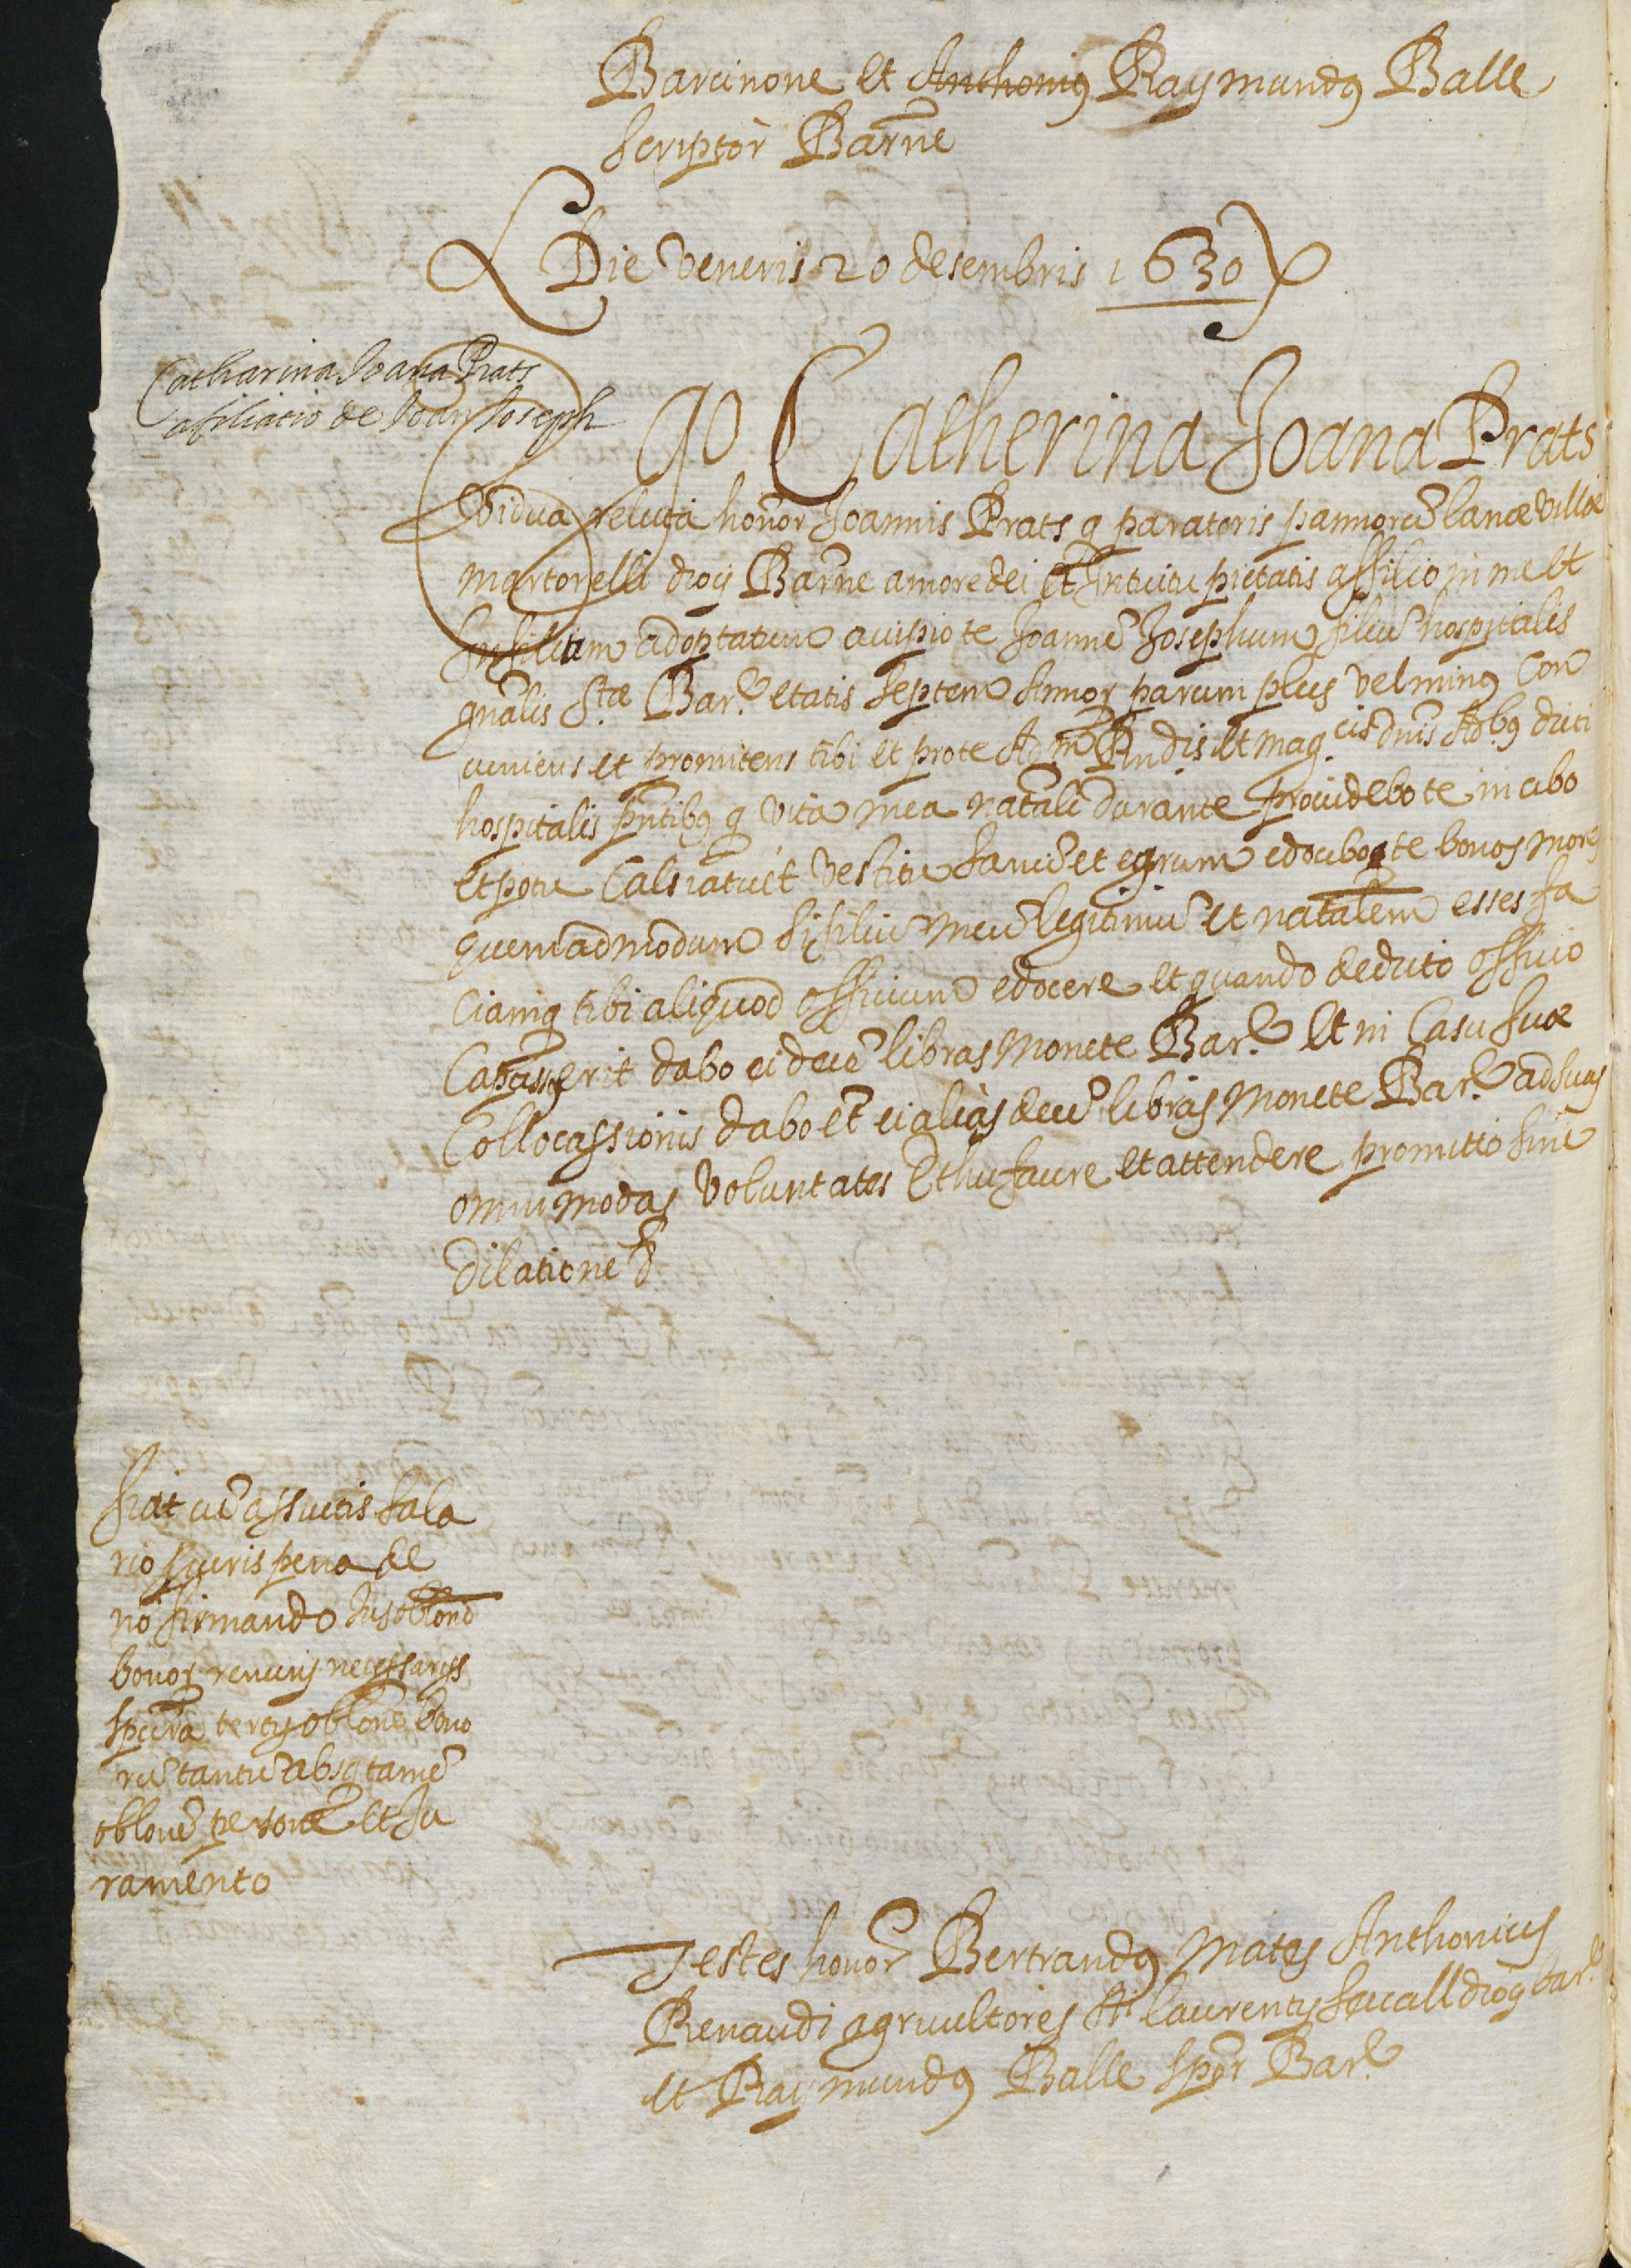 Barcinone et Anthoniꝰ Raymundꝰ Balle
scriptor Barñe
Die veneris 20 desembris 1630
Catharina Joana Prats
afiliatio de Joan Joseph
Ego Catherina Joana Prats
vidua relicta honor Joannis Prats q paratoris pannorũ lanæ villæ
Martorelli diocis Barñe amore dei et intuitu pietatis affilio in me et
in filium adoptatum accipio te Joannẽ Josephum filiũ hospitalis
gñalis Stæ Bar.e etatis septem Annor parum plus vel minꝰ con
veniens et promitens tibi et pro te Adm Rndis et mag.cis dnis Adbꝰ dicti
hospitalis pñtibꝰ q vita mea natali durante providebo te in cibo
et potu calsiatu et vestitu sanũ et egrum edocebo te bonos mores
quemadmodum si filiũ meũ legitimũ et natalem esses fa
ciamq tibi aliquod officium edocere et quando de dicto officio
capax erit dabo ei decẽ libras monete Bar.e et in casu suæ
collocassionis dabo et ei alias decẽ libras monete Bar.e ad suas
omnimodas voluntates Et hec facere et attendere promitto sine
dilatione
fiat cũ assuetis sala
rio scuris pena de
nõ firmando Jus oblonẽ
bonor renuncijs necessarijs
spẽra tercij oblonẽ bono
rũ tantũ absq tamẽ
oblonẽ personæ et Ju
ramento
Testes honor Bertrandꝰ Matas Anthonius
Renaudi agricultores Sti laurentij savall diocis bar.e
et Raymundꝰ Balle spor Bar.e